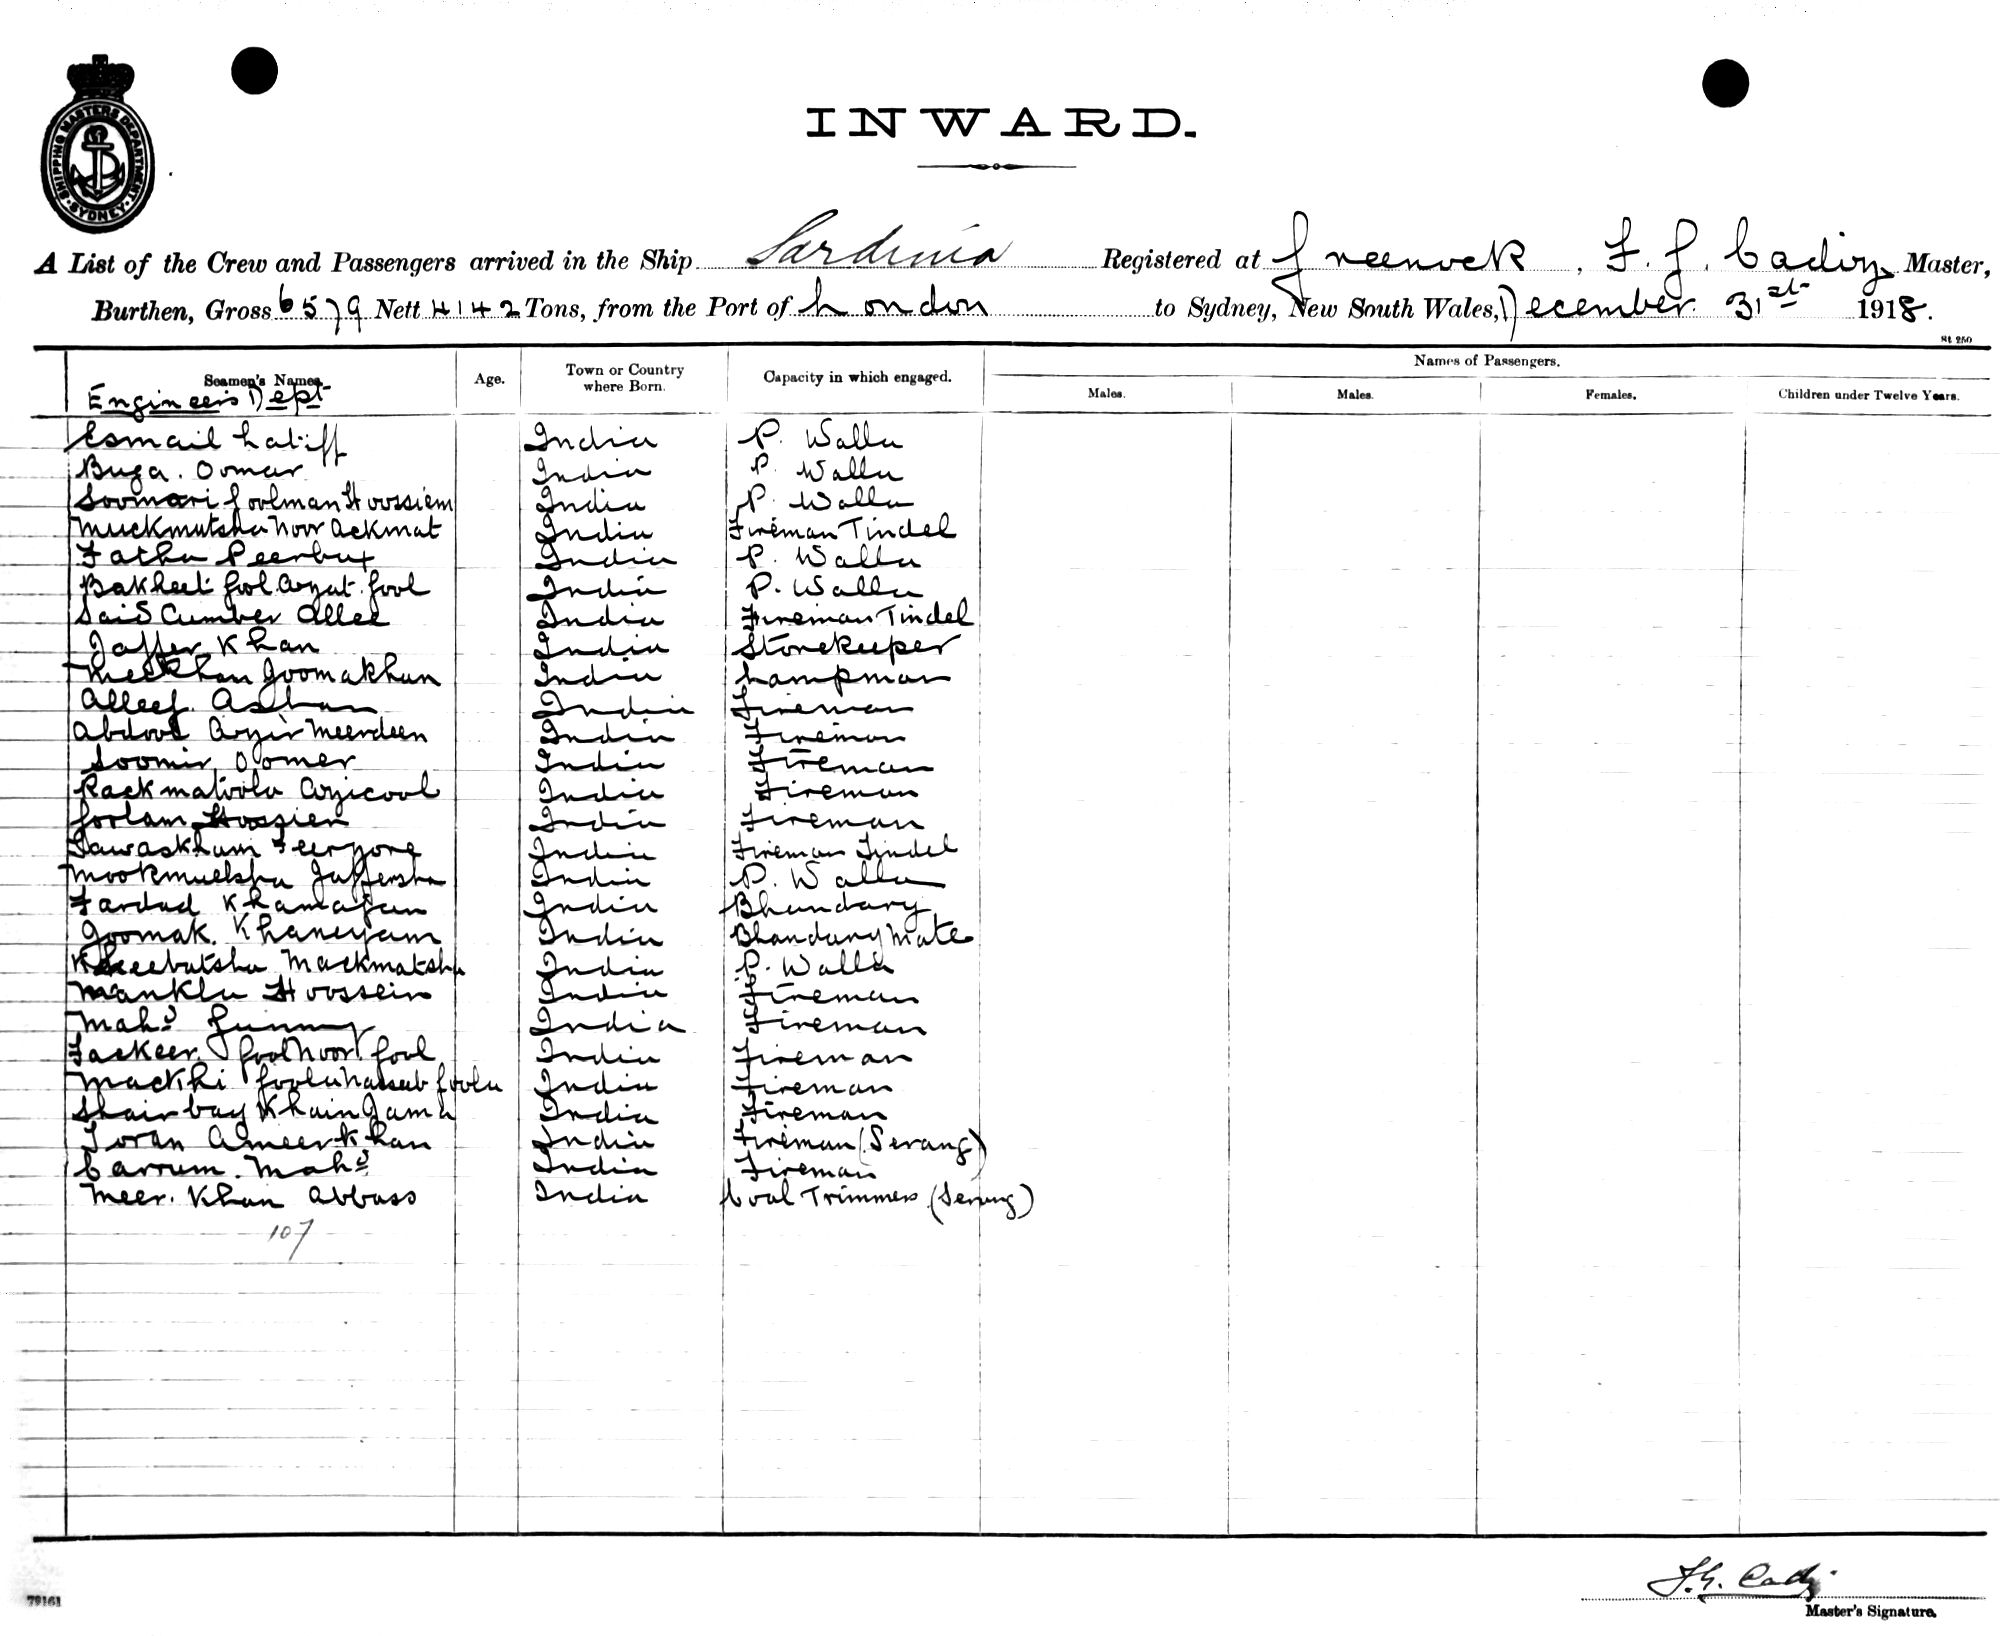 SHIPPING MASTERS DEPARTMENT. SYDNEY.
INWARD.
A List of the Crew and Passengers arrived in the Ship Sardinia Registered at Greenock, F. G. Cadiz Master,
Burthen, Gross 6579 Nett 4142 Tons, from the Port of London to Sydney, New South Wales, December 31st 1918.
St 250
Seamen's Names. Age. Town or Country where Born. Capacity in which engaged. Names of Passengers.
Males. Males. Females. Children under Twelve Years.
Engineers Dept
Esmail Latiff India P. Walla
Buga. Oomar India P. Walla
Soomari Goolman Hoossiem India P. Walla
Muckmutsha Noor Ackmat India Fireman Tindel
Fatha Peerbux India P. Walla
Bakheet Gool Azyat. Gool India P. Walla
Said Cumber Allee India Fireman Tindel
Jaffer Khan India Storekeeper
Meckhan Joomakhan India Lampman
Alleef. Ashan India Fireman
Abdool Azir Meerdeen India Fireman
Soomir Oomer India Fireman
Rackmatoola Azicool India Fireman
Goolam Hossien India Fireman
India Fireman Tindel
Mookmutsha Jaffersha India P. Walla
Fardad Khamajan India Bhandary
Joomak. Khaneyam India Bhandary Mate
Kheebutsha Mackmatsha India P. Walla
Mankla Hoossein India Fireman
Mahd Gunny India Fireman
Fackeer. Gool Noor Gool India Fireman
Mackhi Goola Nassab Goola India Fireman
Shairbay Khain Jama India Fireman
Toran Ameerkhan India Fireman (Serang)
Carrum. Mahd India Fireman
Meer. Khan Abbass India Coal Trimmers (Serang)
107
F.G. Cadiz
Master's Signature.
79161